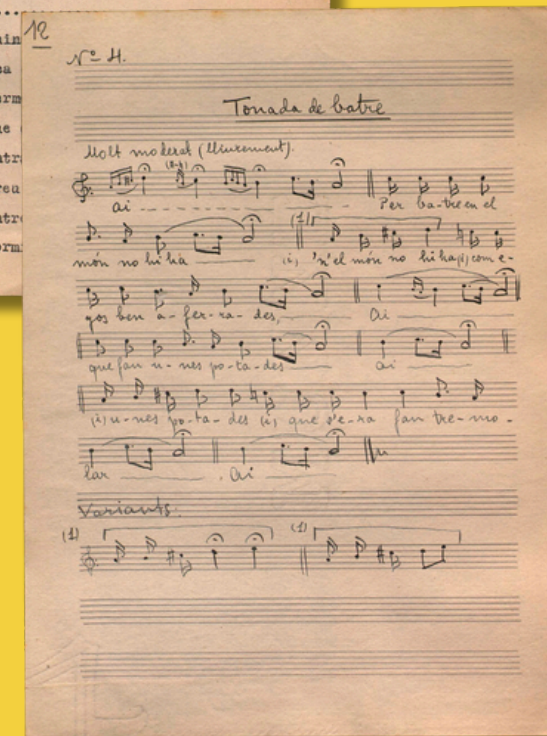 12
Nº 4.
Tonada de batre
Molt moderat (lliurement).
Ai Per ba-tre en el
món no hi ha (1) (i) 'n'el món no hi ha (i) com e-
gos ben a-fer-ra-des, Ai
que fan u-nes po-ta-des ai
(i) u-nes po-ta-des (i) que s'e-ra fan tre-mo-
lar, Ai
Variants:
(1) (1)